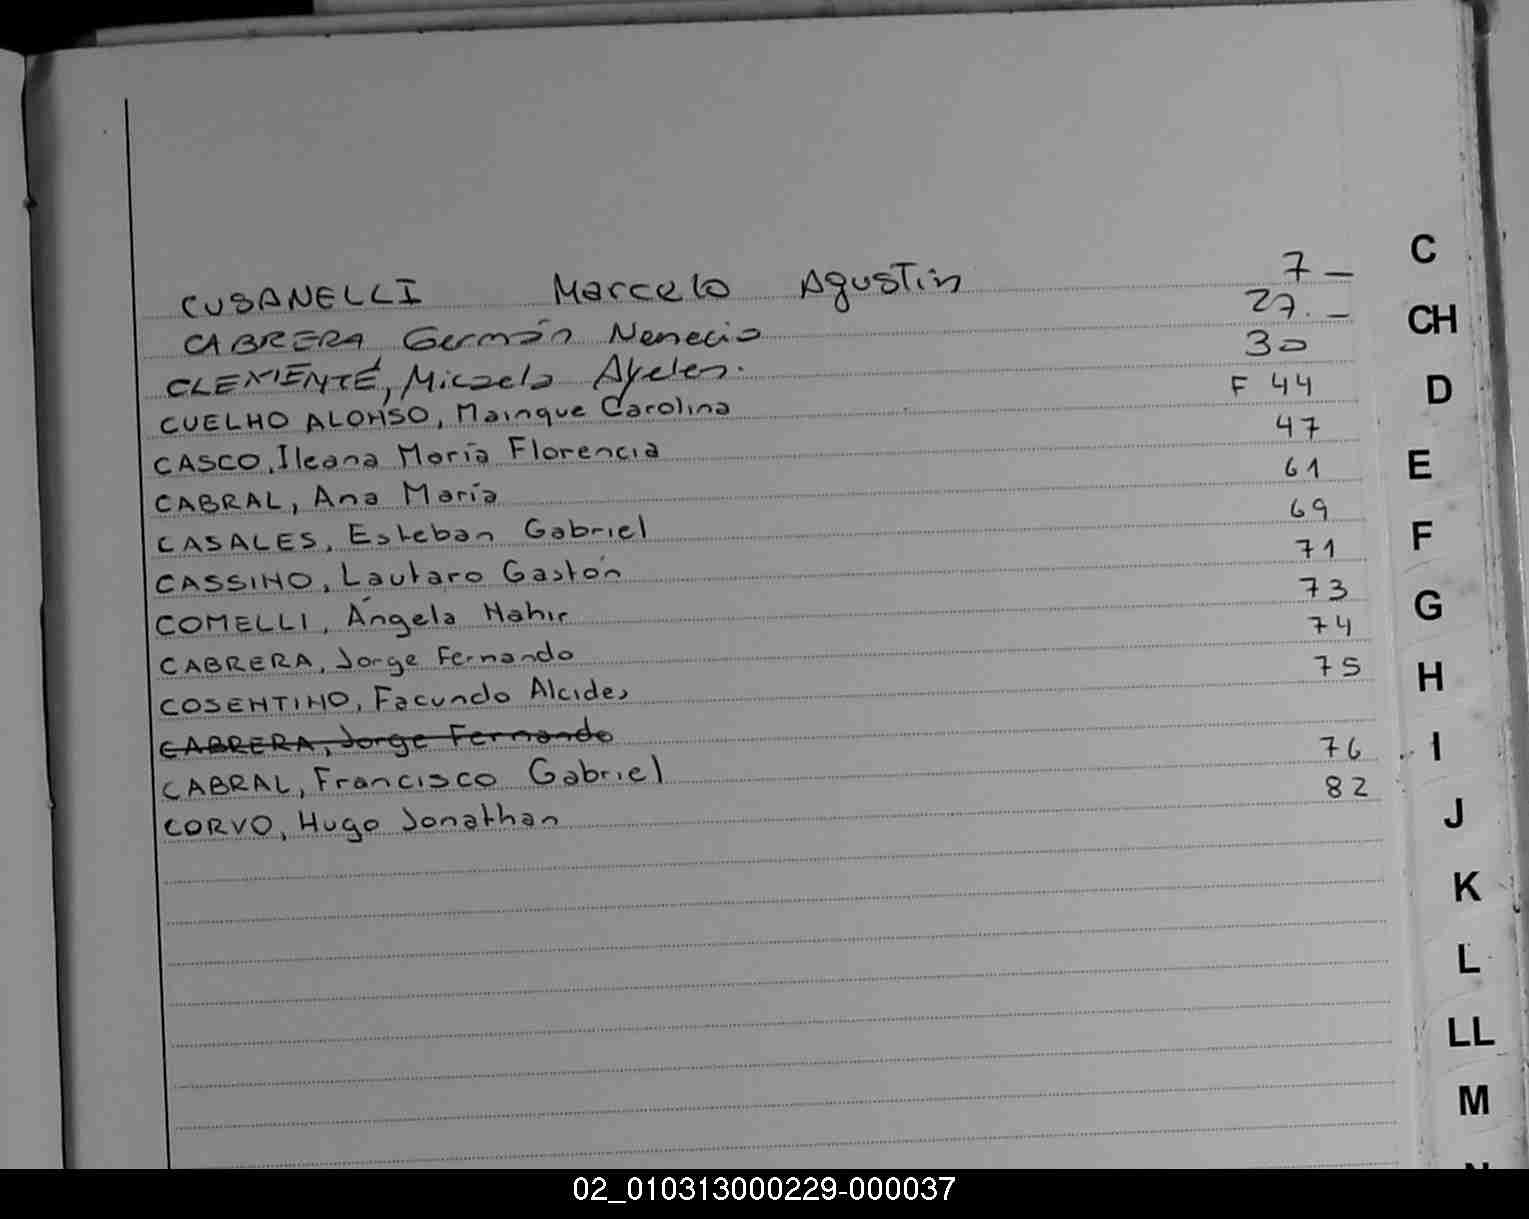 CUSANELLI Marcelo Agustín 7 –
CABRERA Germán Nemecio 27. –
CLEMENTE, Micaela Ayelen. 30
CUELHO ALONSO, Mainque Carolina F 44
CASCO, Ileana María Florencia 47
CABRAL, Ana María 61
CASALES, Esteban Gabriel 69
CASSINO, Lautaro Gastón 71
COMELLI, Ángela Nahir 73
CABRERA, Jorge Fernando 74
COSENTINO, Facundo Alcides 75
CABRERA, Jorge Fernando
CABRAL, Francisco Gabriel 76
CORVO, Hugo Jonathan 82
C
CH
D
E
F
G
H
I
J
K
L
LL
M
02_010313000229-000037